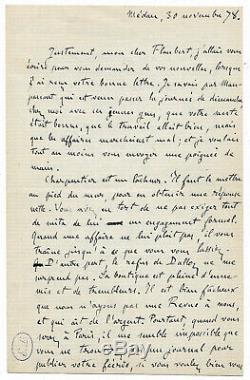 Médan, 30 novembre 78.
Justement, mon cher Flaubert, j'allais vous
écrire pour vous demander de vos nouvelles, lorsque
j'ai reçu votre bonne lettre. Je savais par Mau-
passant qui est venu passer la journée de dimanche
chez moi avec ces jeunes gens, que votre santé
était bonne, que le travail allait bien, mais
que les affaires marchaient mal ; et je voulais
tout au moins vous envoyer une poignée de
main.
Charpentier est un lâcheur. Il faut le mettre
au pied du mur, pour en obtenir une réponse
nette. Vous avez eu tort de ne pas exiger tout
de suite de lui un engagement formel.
Quand une affaire ne lui plaît pas, il vous
traîne jusqu'à ce que vous vous lassiez.
D'autre part, le refus de Dalloz ne me
surprend pas. La boutique est pleine d'envi-
et de trembleurs. Il est bien fâcheux
que nous n'ayons pas une Revue à nous
et qui ait de l'argent. Pourtant, quand vous
serez à Paris, il me semble impossible que
vous ne trouviez pas un journal pour
publier votre féerie, si vous voulez bien vous